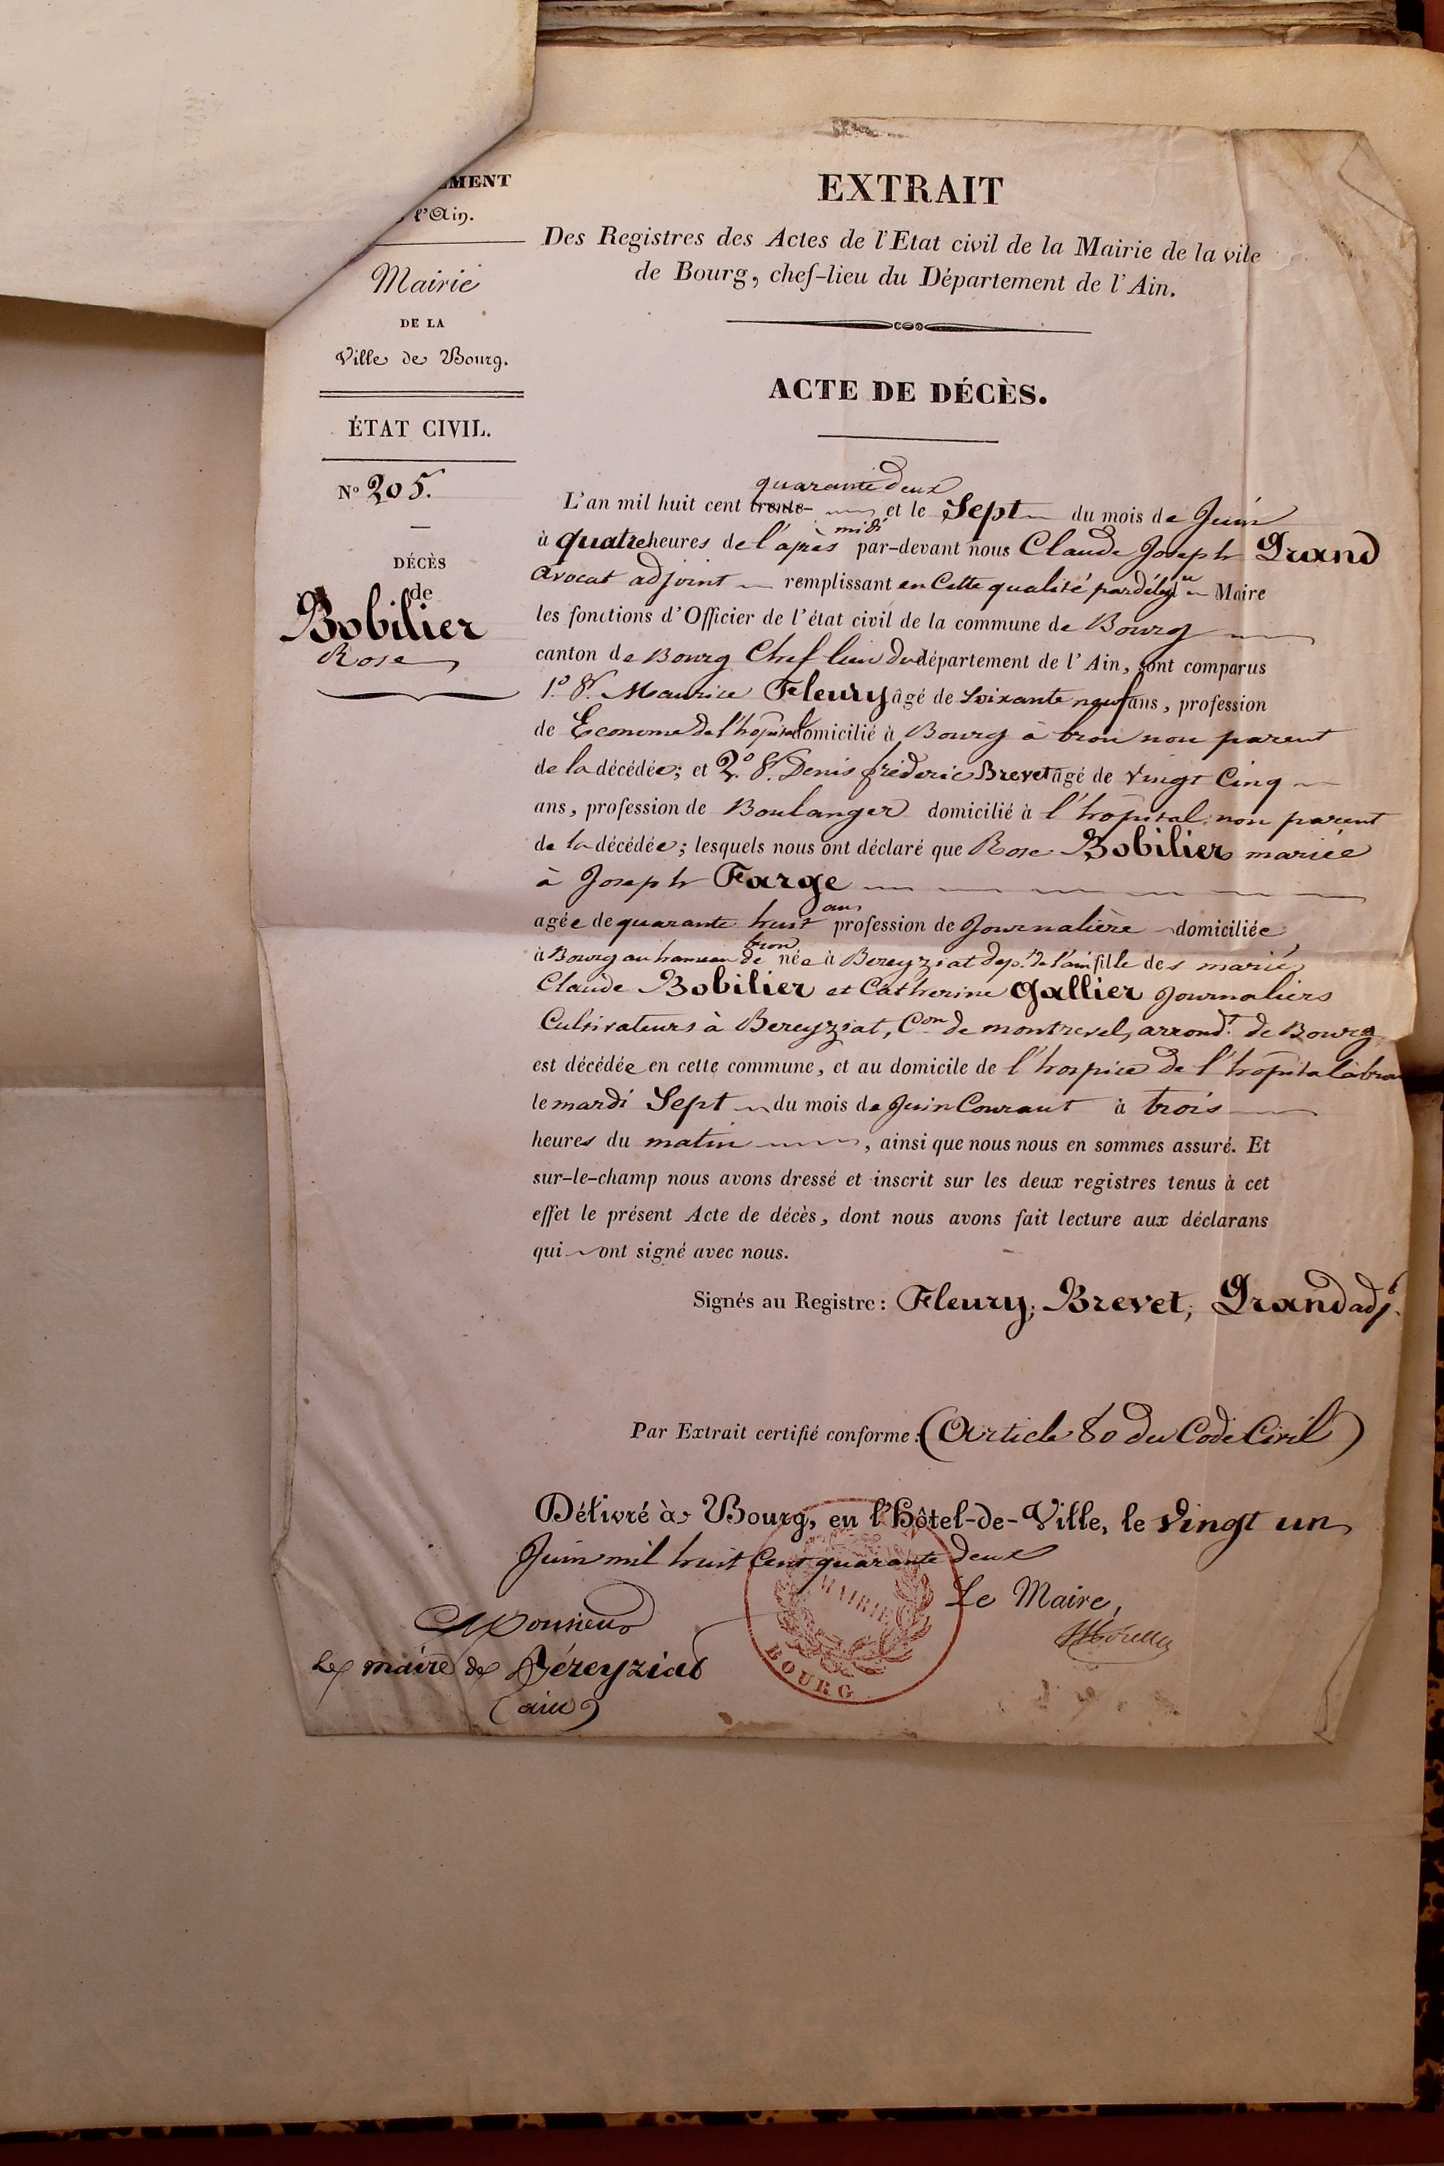 EMENT
l'Ain.
Mairie
DE LA
Ville de Bourg.
ÉTAT CIVIL.
N° 205.
DÉCÈS
de
Bobilier
Rose
EXTRAIT
Des Registres des Actes de l'Etat civil de la Mairie de la vile
de Bourg, chef-lieu du Département de l'Ain.
ACTE DE DÉCÈS.
quarante deux
L'an mil huit cent trente- et le Sept du mois de Juin
à quatre heures de l'après midi par-devant nous Claude Joseph Grand
avocat adjoint remplissant en cette qualité par délég.on du Maire
les fonctions d'Officier de l'état civil de la commune de Bourg
canton de Bourg Chef lieu du département de l'Ain, sont comparus
1.° S.r Maurice Fleury âgé de soixante neuf ans, profession
de Econome de l'hopital domicilié à Bourg à brou non parent
de la décédée; et 2.° S.r Denis fréderic Brevet âgé de vingt Cinq
ans, profession de Boulanger domicilié à l'hôpital non parent
de la décédée; lesquels nous ont déclaré que Rose Bobilier mariée
à Joseph Farge
agée de quarante huit ans profession de Journalière domiciliée
à Bourg au hameau de brou née à Bereyziat dep.t de l'ain fille des mariés
Claude Bobilier et Catherine Gallier Journaliers
Cultivateurs à Bereyziat, C.on de montrevel, arrond.t de Bourg
est décédée en cette commune, et au domicile de l'hospice de l'hôpital à brou
le mardi Sept du mois de Juin Courant à trois
heures du matin, ainsi que nous nous en sommes assuré. Et
sur-le-champ nous avons dressé et inscrit sur les deux registres tenus à cet
effet le présent Acte de décès, dont nous avons fait lecture aux déclarans
qui ont signé avec nous.
Signés au Registre: Fleury; Brevet; Grand adj.t
Par Extrait certifié conforme: (Article 80 du Code Civil)
Délivré à Bourg, en l'Hôtel-de-Ville, le vingt un
Juin mil huit Cent quarante deux
Le Maire,
MAIRIE
BOURG
Monsieur
Le maire de Béreyziat
(ain)